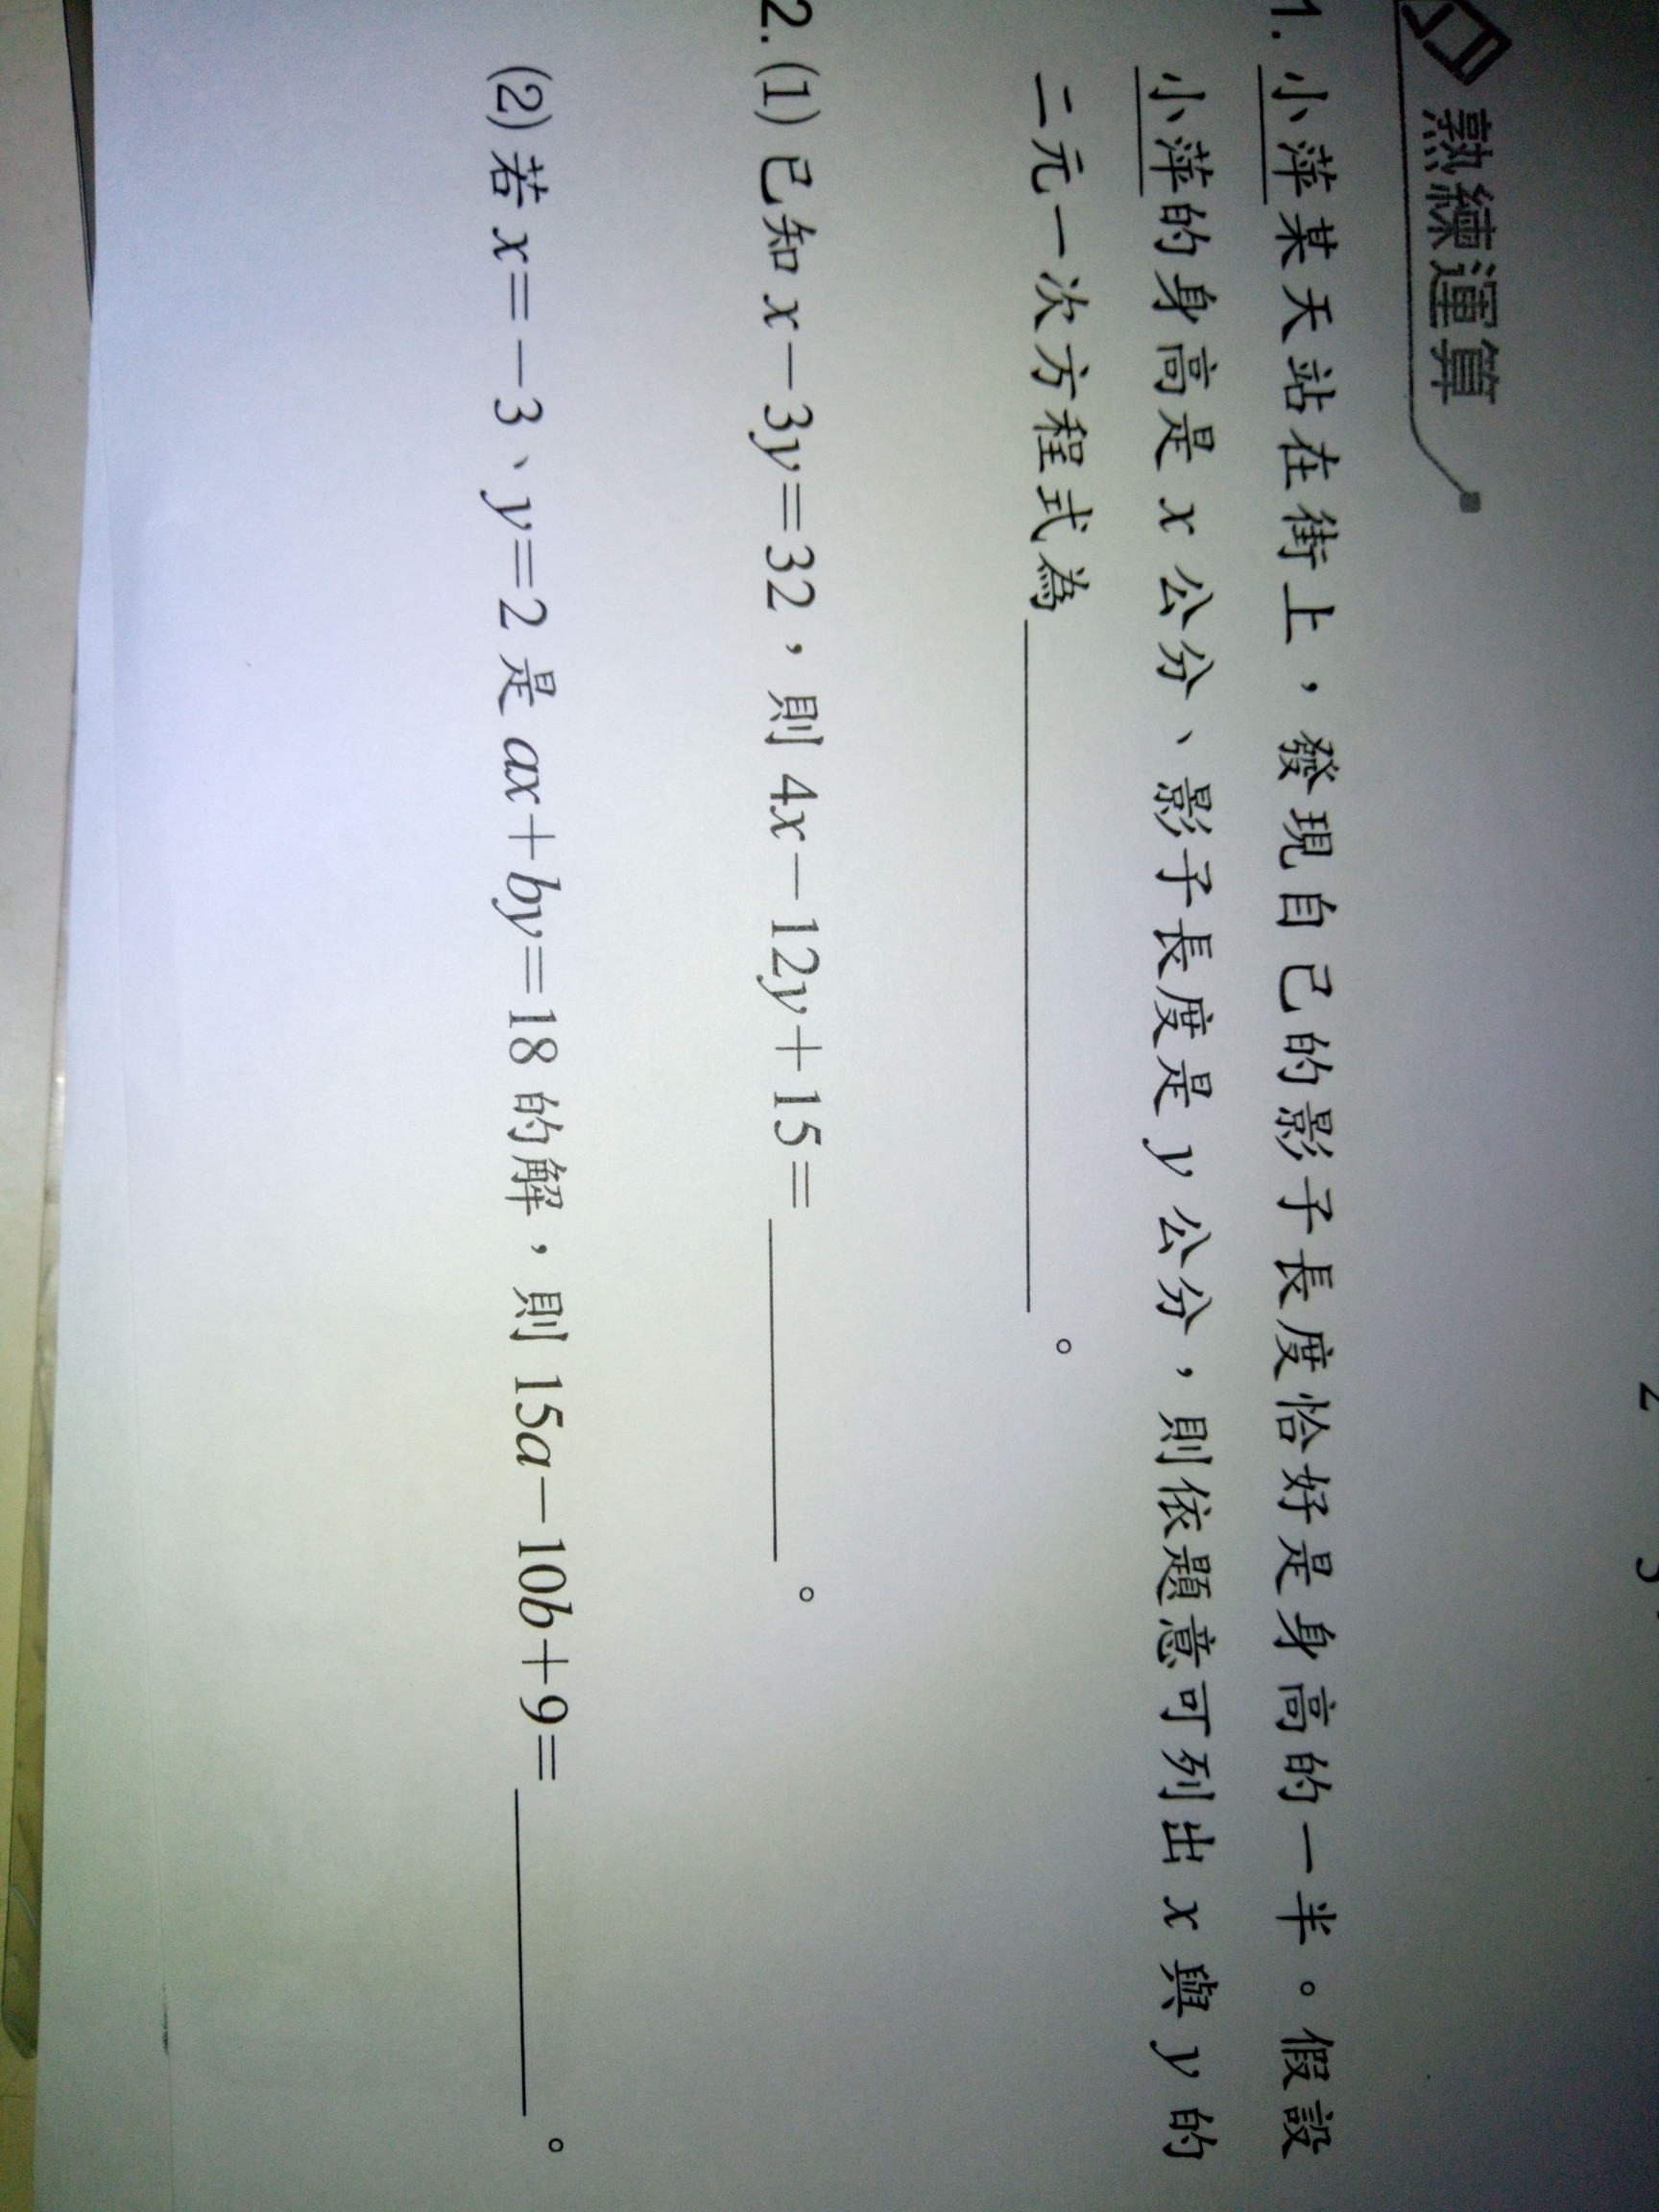 熟練運算
1. 小萍某天站在街上，發現自己的影子長度恰好是身高的一半。假設
小萍的身高是 x 公分、影子長度是 y 公分，則依題意可列出 x 與 y 的
二元一次方程式為＿＿＿＿＿＿＿＿。
2. (1) 已知 x－3y＝32，則 4x－12y＋15＝＿＿＿＿。
(2) 若 x＝－3、y＝2 是 ax＋by＝18 的解，則 15a－10b＋9＝＿＿＿＿。